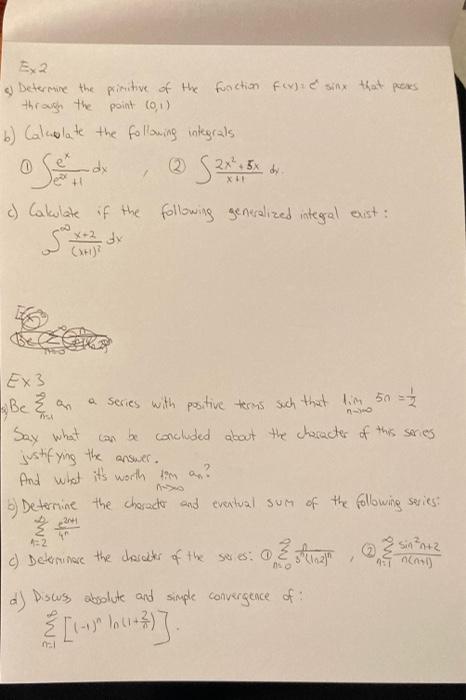 Ex2
a) Determine the primitive of the function f(x)= e^x sinx that passes
through the point (0,1)
b) Calculate the following integrals
① ∫ e^x/(e^2x +1) dx , ② ∫ (2x²+5x)/(x+1) dx.
c) Calculate if the following generalized integral exist :
∫^∞ (x+2)/(x+1)² dx
Ex3
a) Be Σ_{n=1}^∞ an a series with positive terms such that lim_{n→∞} Sn = 1/2
Say what can be concluded about the character of this series
justifying the answer.
And what it's worth lim_{n→∞} an?
b) Determine the character and eventual sum of the following series:
Σ_{n=2}^∞ e^{2n+1}/4^n
c) Determinare the character of the series: ① Σ_{n=0}^∞ n/(3^n(ln2)^n) , ② Σ_{n=1}^∞ (sin²n+2)/(n(n+1))
d) Discuss absolute and simple convergence of :
Σ_{n=1}^∞ [(-1)^n ln(1+2/n)].